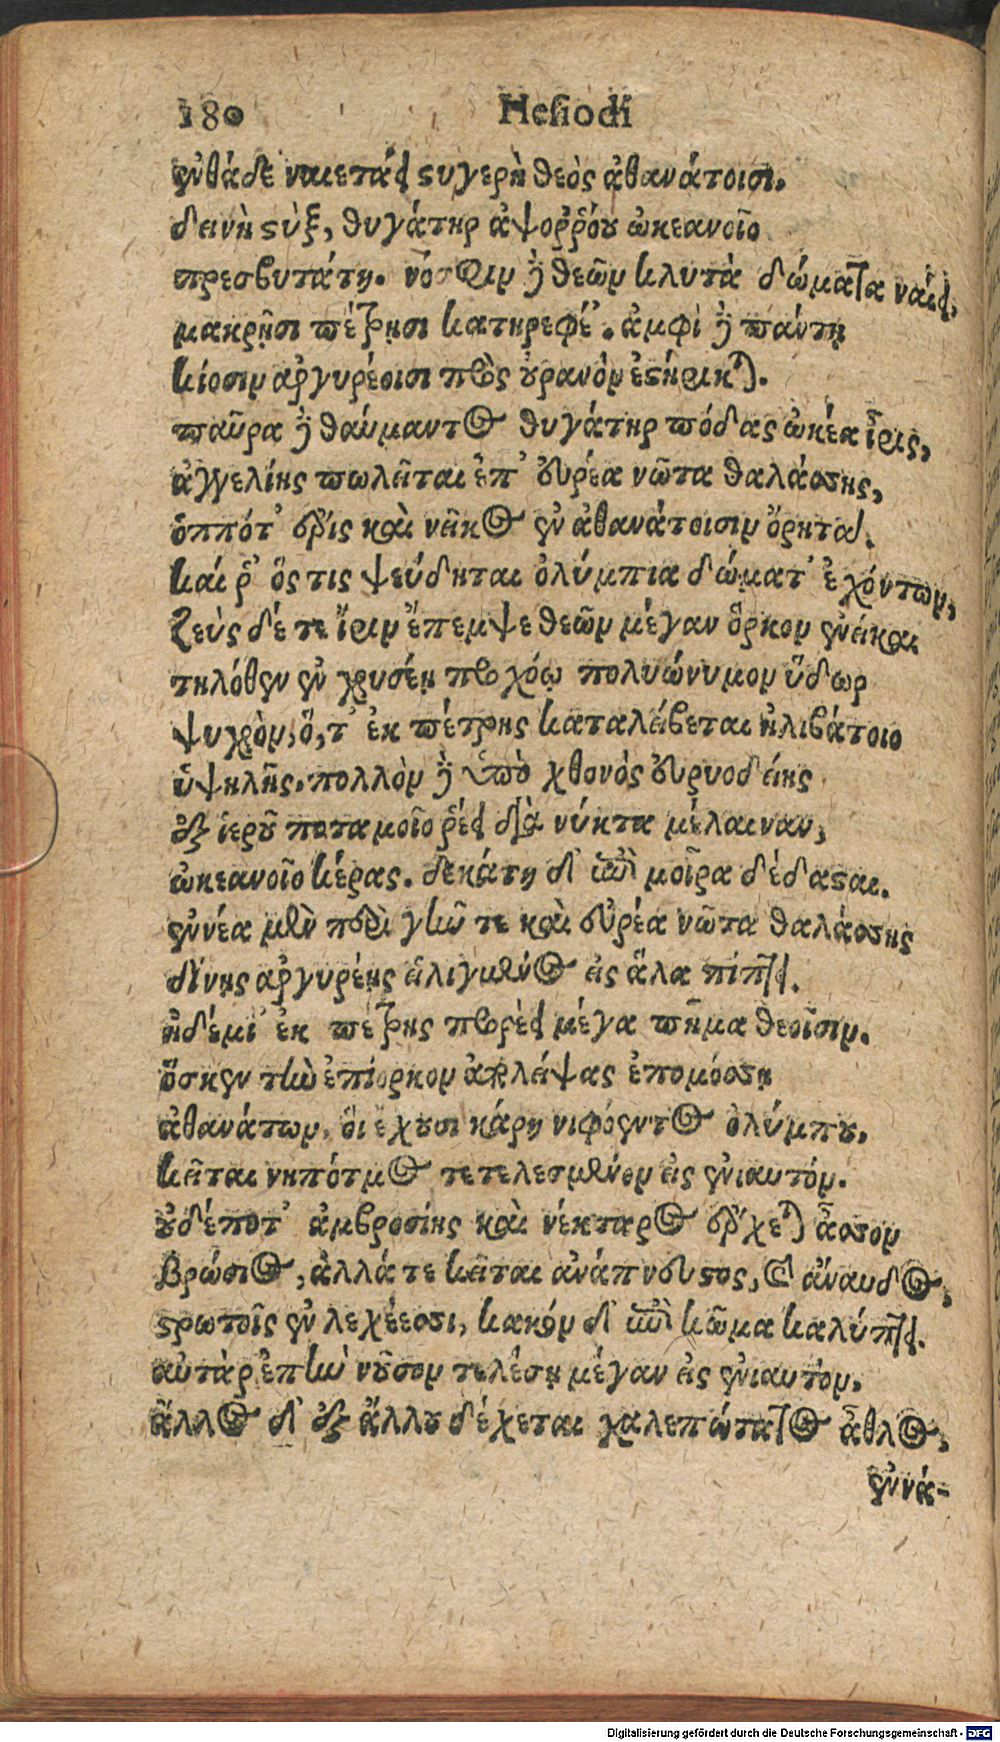 180 Hesiodi
ἐνθάδε ναιετάει στυγερὴ θεὸς ἀθανάτοισι.
δεινὴ στὺξ, θυγάτηρ ἀψοῤῥόου ὠκεανοῖο
πρεσβυτάτη. νόσφιν δὲ θεῶν κλυτὰ δώματα ναίει,
μακρῇσι πέτρῃσι κατηρεφέ'. ἀμφὶ δὲ πάντη
κίοσιν ἀργυρέοισι πρὸς οὐρανὸν ἐστήρικται.
παῦρα δὲ θαύμαντος θυγάτηρ πόδας ὠκέα ἶρις,
ἀγγελίης πωλεῖται ἐπ' εὐρέα νῶτα θαλάσσης,
ὁππότ' ἔρις καὶ νεῖκος ἐν ἀθανάτοισιν ὄρηται.
καί ῥ' ὅς τις ψεύδηται ὀλύμπια δώματ' ἐχόντων,
Ζεὺς δέ τε ἴριν ἔπεμψε θεῶν μέγαν ὅρκον ἐνεῖκαι
τηλόθεν ἐν χρυσέῃ προχόῳ πολυώνυμον ὕδωρ
ψυχρὸν, ὅ, τ' ἐκ πέτρης καταλείβεται ἠλιβάτοιο
ὑψηλῆς. πολλὸν δὲ ὑπὸ χθονὸς εὐρυοδείης
ἐξ ἱεροῦ ποταμοῖο ῥέει διὰ νύκτα μέλαιναν,
ὠκεανοῖο κέρας. δεκάτη δ' ἐπὶ μοῖρα δέδασται.
ἐννέα μὲν περὶ γῆν τε καὶ εὐρέα νῶτα θαλάσσης
δίνης ἀργυρέης εἱλιγμένος εἰς ἅλα πίπτει.
ἡ δέ μί' ἐκ πέτρης προρέει μέγα πῆμα θεοῖσιν.
ὅς κεν τὴν ἐπίορκον ἀπολείψας ἐπομόσσῃ
ἀθανάτων, οἳ ἔχουσι κάρη νιφόεντος ὀλύμπου,
κεῖται νηπότμος τετελεσμένον εἰς ἐνιαυτόν.
οὐδέποτ' ἀμβροσίης καὶ νέκταρος ἔρχεται ἆσσον
βρώσιος, ἀλλά τε κεῖται ἀνάπνευστος, καὶ ἄναυδος,
στρωτοῖς ἐν λεχέεσσι, κακὸν δ' ἐπὶ κῶμα καλύπτει.
αὐτὰρ ἐπὴν νοῦσον τελέσῃ μέγαν εἰς ἐνιαυτόν,
ἄλλος δ' ἐξ ἄλλου δέχεται χαλεπώτατος ἆθλος,
ἐννά-
Digitalisierung gefördert durch die Deutsche Forschungsgemeinschaft - DFG